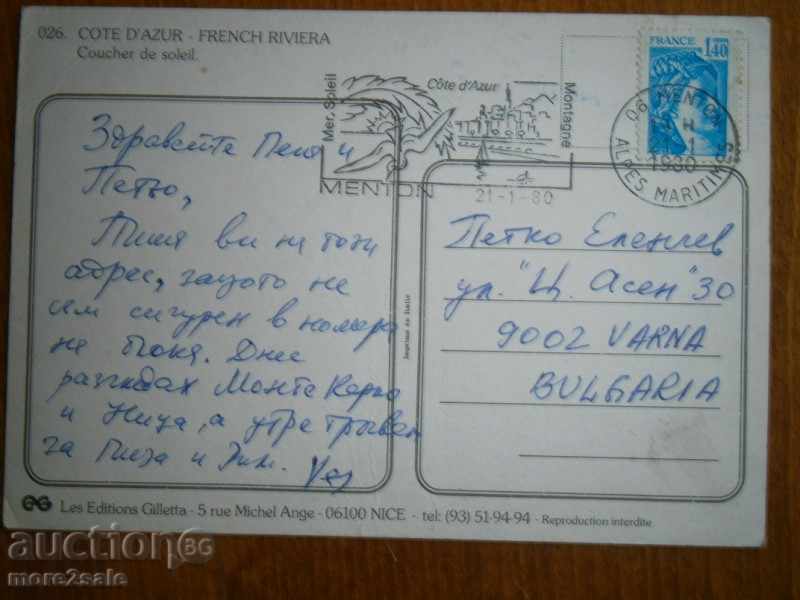 026. COTE D'AZUR - FRENCH RIVIERA
Coucher de soleil.
FRANCE
1,40
Mer, Soleil
Côte d'Azur
Montagne
MENTON
21-1-80
06 MENTON
1980
ALPES MARITIMES
Здравейте Пепа и
Петьо,
Пиша ви на този
адрес, защото не
съм сигурен в номера
на блока. Днес
разгледах Монте Карло
и Ница, а утре тръгвам
за Пиза и Рим.
Петко Еленчев
ул. "Ц. Асен" 30
9002 VARNA
BULGARIA
Les Editions Gilletta - 5 rue Michel Ange - 06100 NICE - tel: (93) 51-94-94 - Reproduction interdite
auction86
more2sale